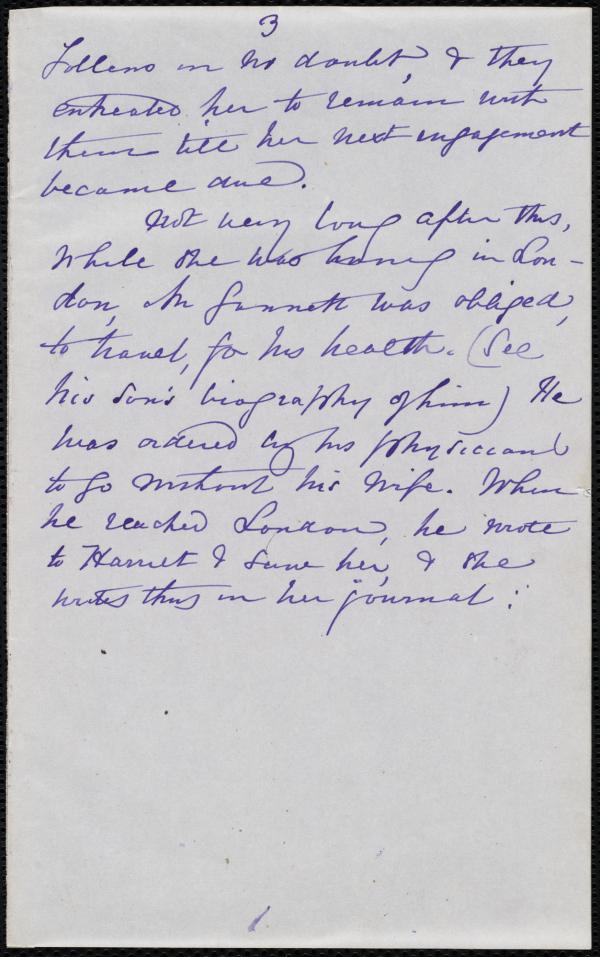 3
Follens in no doubt, & they
entreated her to remain with
them till her next engagement
became due.
Not very long after this,
while she was living in Lon-
don, Mr Gannett was obliged,
to travel, for his health. (See
his son's biography of him) He
was ordered by his physicians
to go without his wife. When
he reached London, he wrote
to Harriet & saw her, & she
writes thus in her journal: